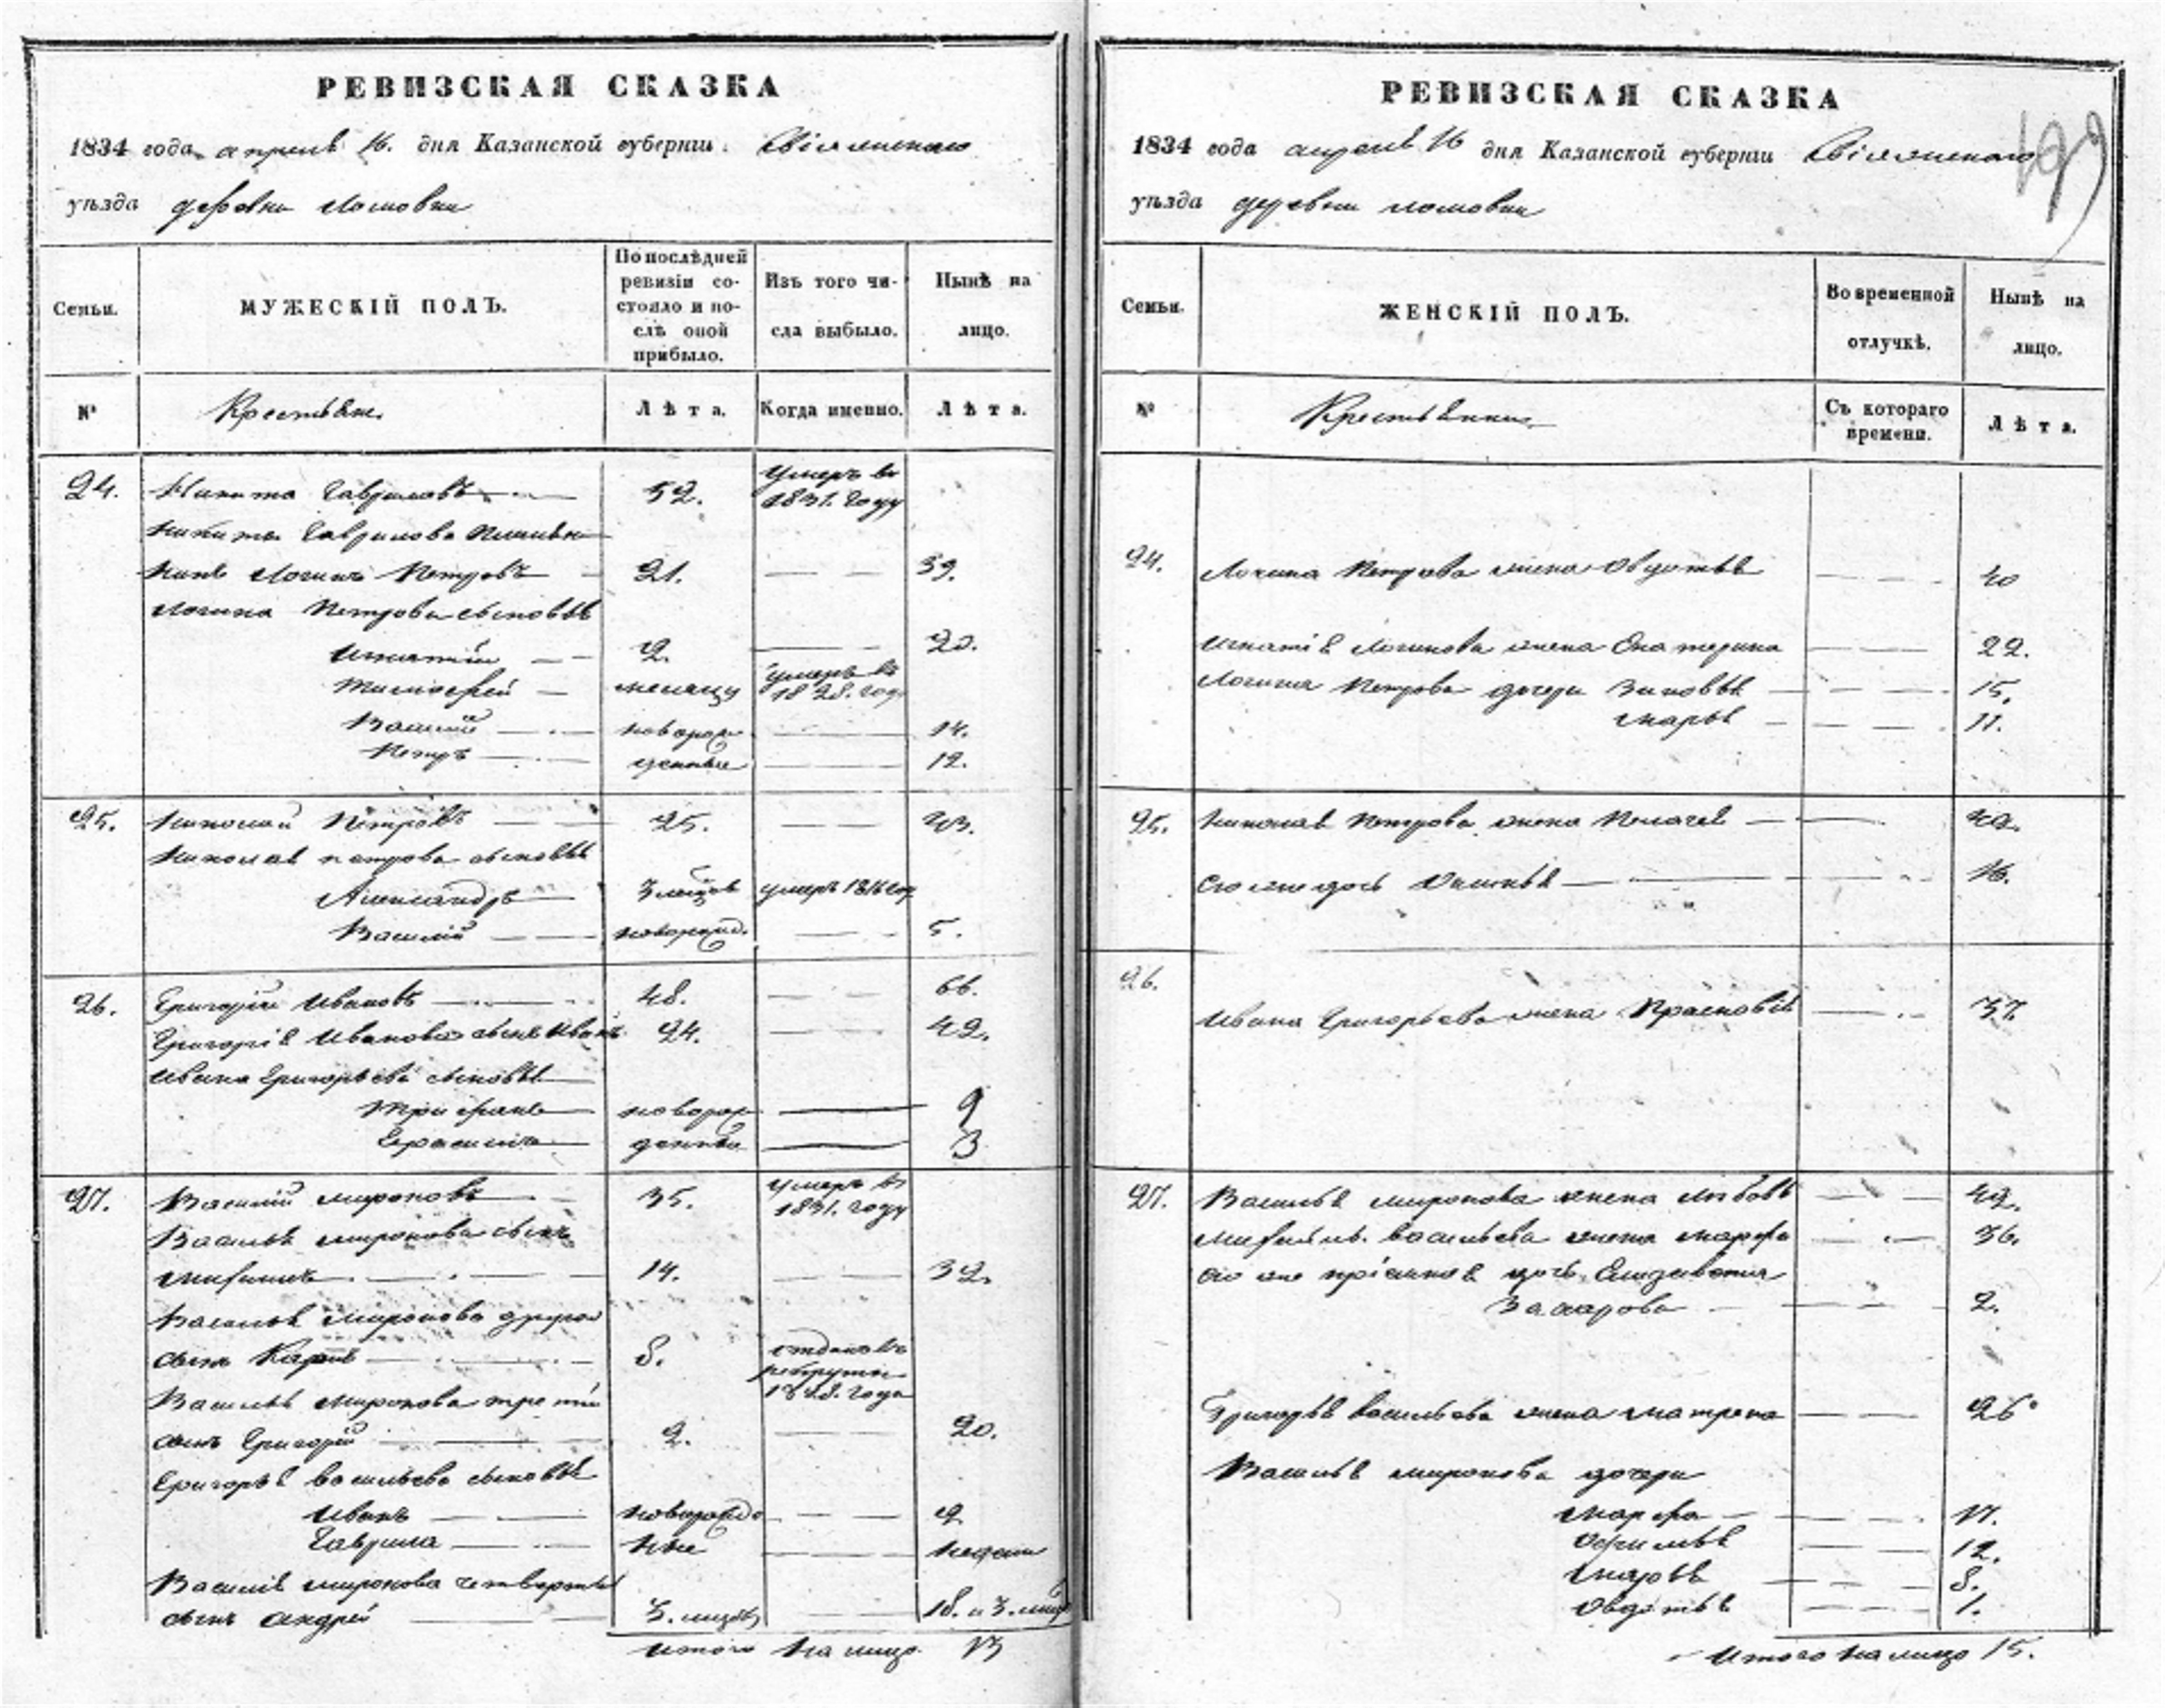 РЕВИЗСКАЯ СКАЗКА
1834 года апреля 16. дня Казанской губернии Свіяжскаго
уѣзда деревни
Семьи.
МУЖЕСКІЙ ПОЛЪ.
По послѣдней ревизіи состояло и послѣ оной прибыло.
Изъ того числа выбыло.
Нынѣ на лицо.
№
Крестьяне.
Лѣта.
Когда именно.
Лѣта.
24. Никита Гавриловъ 52. умеръ въ 1831. году
Никиты Гаврилова племян
никъ Логинъ Петровъ 21. 39.
Логина Петрова сыновья
Игнатій 2. 20.
Тимофей месяцу умеръ въ 1828. году
Василій новорож 14.
Петръ денные 12.
25. Николай Петровъ 25. 43.
Николая Петрова сыновья
Александръ 3 месяцов умеръ 1816 году
Василій новорожд. 5.
26. Григорій Ивановъ 48. 66.
Григорія Иванова сынъ Иванъ 24. 42.
Ивана Григорьева сыновья
Трифонъ новорож 9
Герасимъ денные 3
27. Василій Мироновъ 35. умеръ въ 1831. году
Василья Миронова сынъ
14. 32.
Василья Миронова другой
сынъ Карпъ 8. отданъ въ рекруты года
Василья Миронова третій
сынъ Григорій 2. 20.
Григорья Васильева сыновья
Иванъ новорожде 2
Гаврила ные недели
Василья Миронова четвертый
сынъ Андрей 3. месяцов 18. и 3. меся
итого на лицо 13
РЕВИЗСКАЯ СКАЗКА
199
1834 года апреля 16 дня Казанской губерніи Свіяжскаго
уѣзда деревни
Семьи.
ЖЕНСКІЙ ПОЛЪ.
Во временной отлучкѣ.
Нынѣ на лицо.
№
Крестьянки
Съ котораго времени.
Лѣта.
24. Логина Петрова жена Овдотья 40
Игнатія Логинова жена Екатерина 22.
Логина Петрова дочери Зиновья 15.
Марья 11.
25. Николая Петрова жена Пелагея 42.
Его же дочь 16.
26.
Ивана Григорьева жена Прасковья 37
27. Василья Миронова жена Любовь 42.
Васильева жена Марфа 36.
Его же дочь Елизавета
Захарова 2.
Григорья Васильева жена Матрена 26
Василья Миронова дочери
Марфа 17.
Офимья 12.
Марья 8.
Овдотья 1.
Итого на лицо 15.